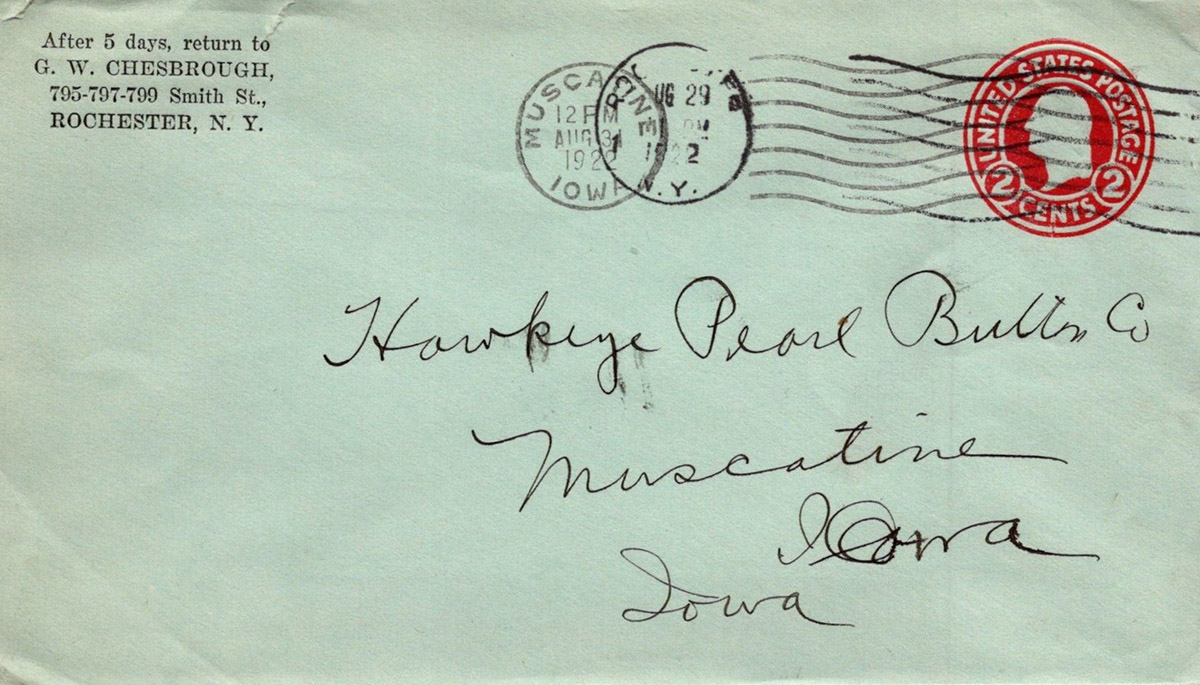 After 5 days, return to
G. W. CHESBROUGH,
795-797-799 Smith St.,
ROCHESTER, N. Y.
MUSCATINE
12 PM
AUG 31
1922
IOWA
UG 29
PM
1922
N. Y.
UNITED STATES POSTAGE
2 CENTS 2
Hawkeye Pearl Button Co
Muscatine
Iowa
Iowa